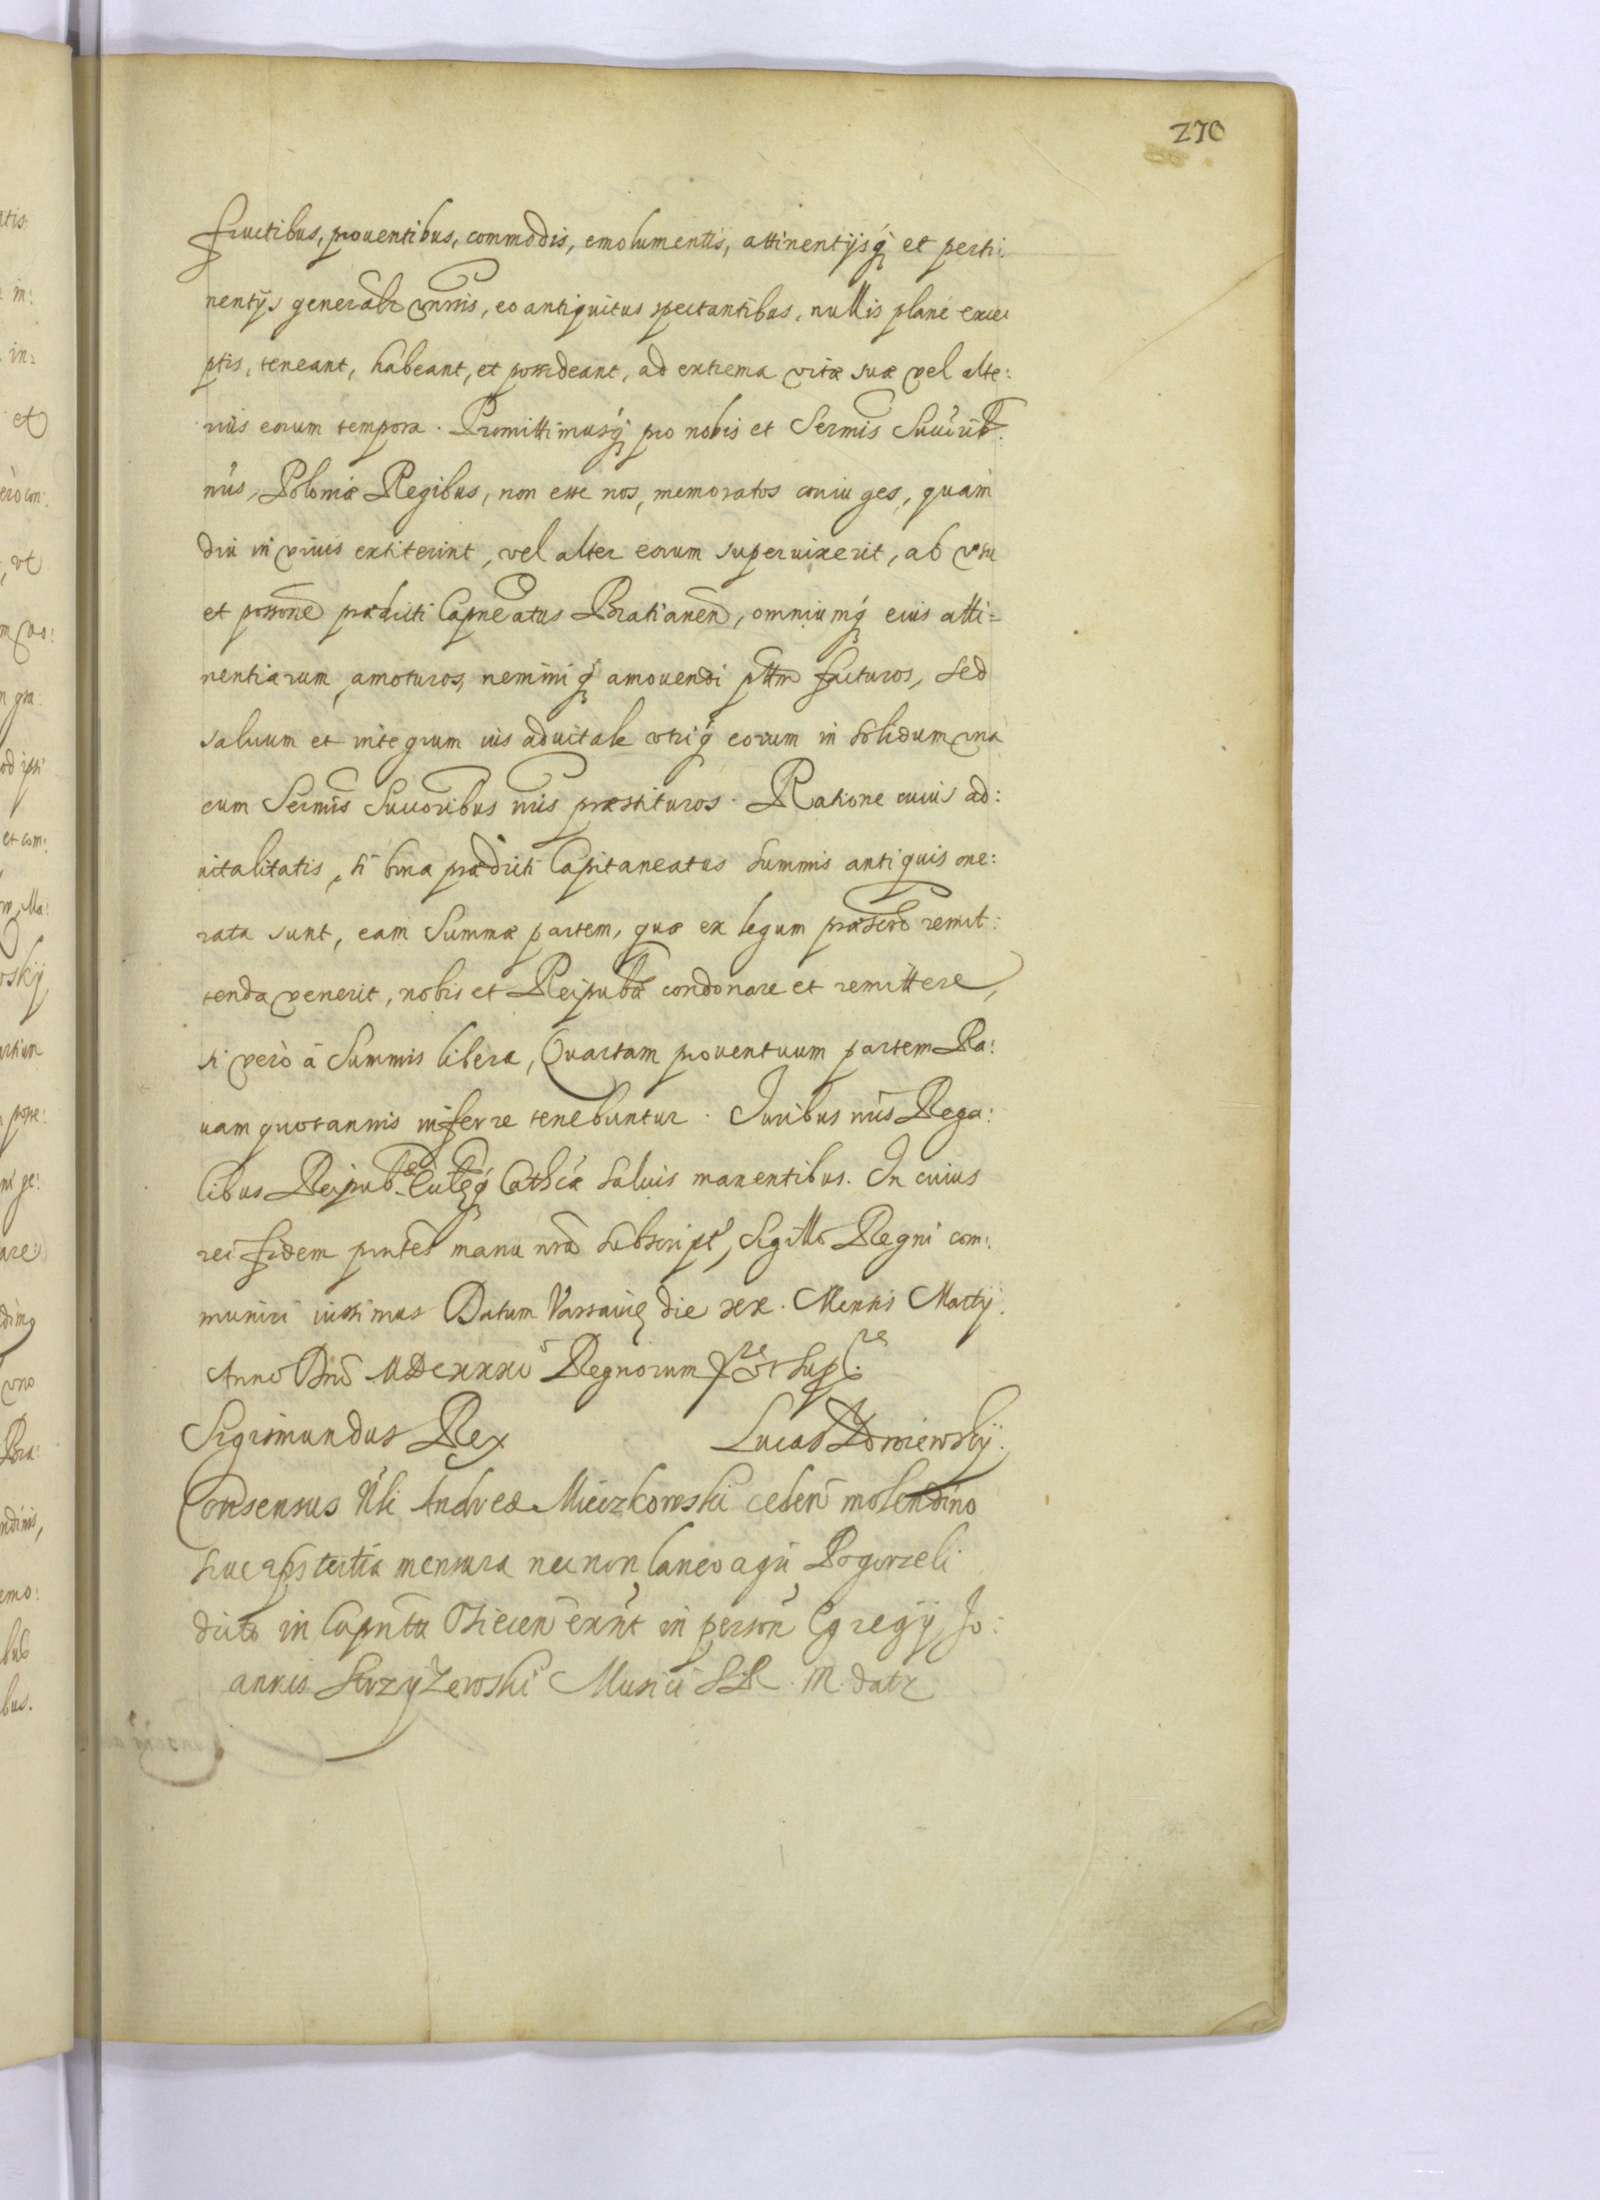 270
fructibus, prouentibus, commodis, emolumentis, attinentijsq́ et perti:
nentijs generalr omnis, eo antiquitus spectantibus, nullis planè excei
ptis, teneant, habeant, et possideant, ad extrema vitæ suæ vel alte:
rius eorum tempora. Promittimusq́ pro nobis et Sermis Succrib.
nris, Poloniæ Regibus, non esse nos, memoratos coniuges, quam
diu in viuis extiterint, vel alter eorum superuixerit, ab vsu
et possone prædicti Capneatus Bratianen, omniumq́ eius atti=
nentiarum amoturos, neminiq́ amouendi pttm facturos, sed
saluum et integrum ius aduitale vtriq́ eorum in solidum vna
cum Sermis Succoribus nris præstituros. Ratione cuius ad:
uitalitatis, si bona prædicti Capitaneatus summis antiquis one:
rata sunt, eam Summæ partem, quæ ex legum præscro remit:
tenda venerit, nobis et Reipubæ condonare et remittere,
si verò à Summis libera, Quartam prouentuum partem Ra:
uam quotannis inferre tenebuntur. Juribus nris Rega:
libus Reipub. Eutisq́ Cathcæ saluis manentibus. In cuius
rei fidem pntes manu nra subscript, Sigillo Regni com:
muniri iussimus Datum Varsauiæ die xx. Mensis Martij.
Anno Dni MDCXXXI Regnorum
Sigismundus Rex Lucas
Consensus Nbli Andreæ Mieczkowski ceden molendino
siue tertia mensura necnon laneo agri Pogorzeli
dicto in Capntu Osiecen exnt in person Egregij Jo:
annis Strzyżewski Musici S.R.M. datr